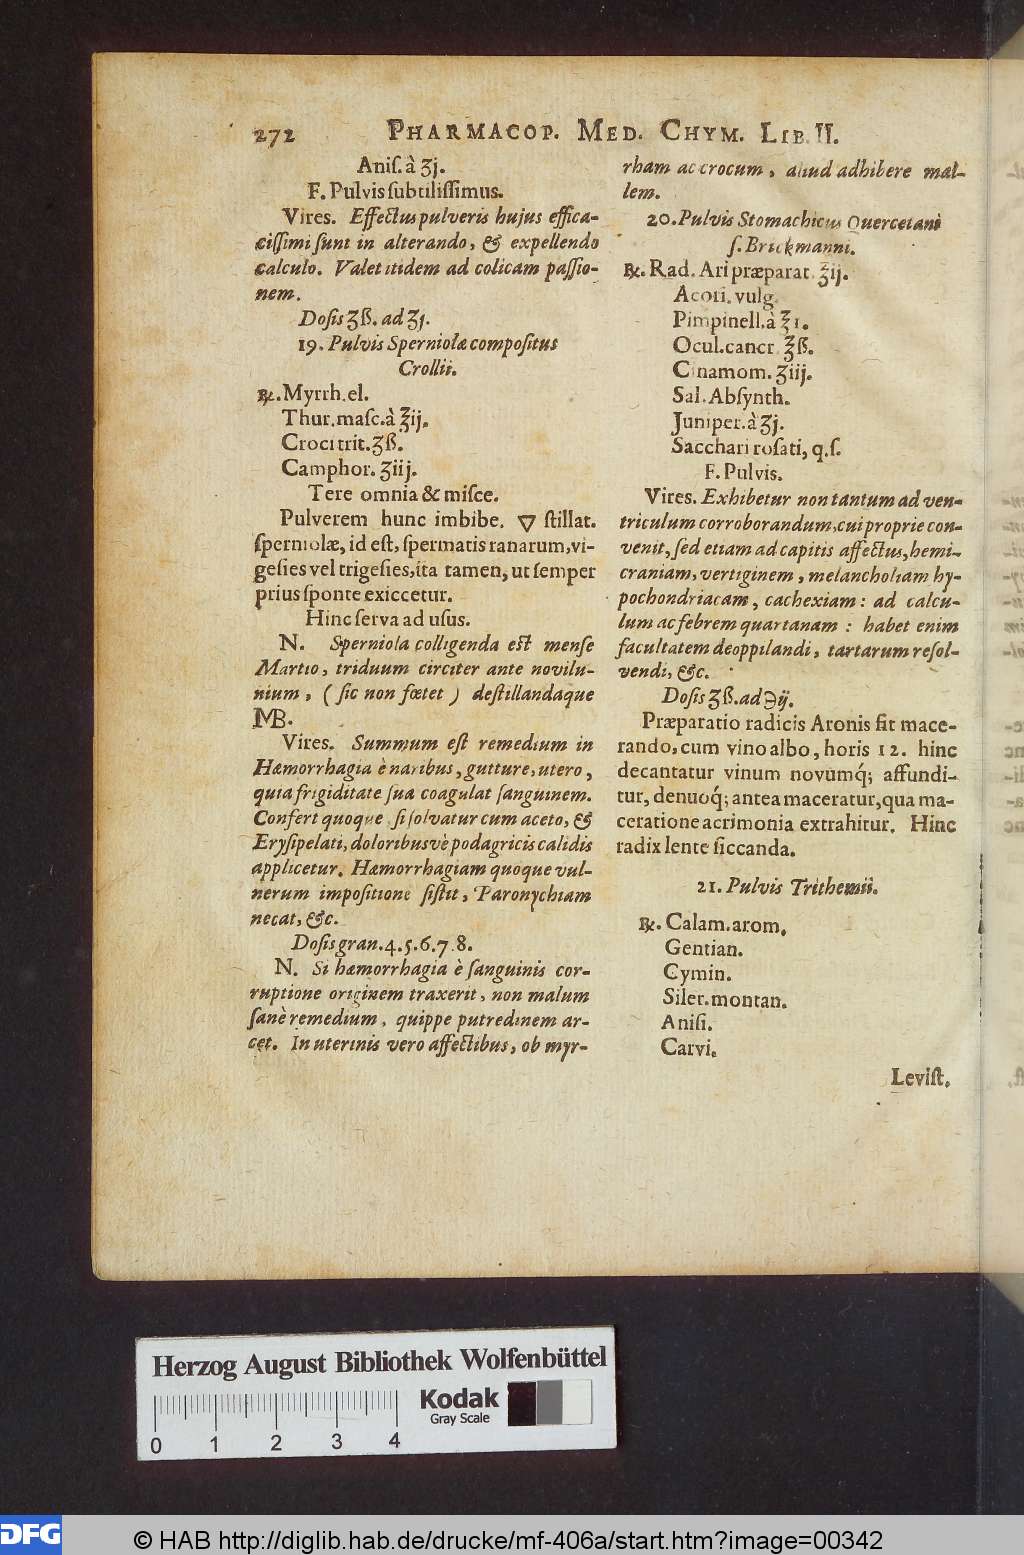 272 PHARMACOP. MED. CHYM. LIB. II.
Aniſ. à ʒj.
F. Pulvis ſubtiliſſimus.
Vires. Effectus pulveris hujus effica-
ciſſimi ſunt in alterando, & expellendo
calculo. Valet itidem ad colicam paſſio-
nem.
Doſis ʒß. ad ʒj.
19. Pulvis Sperniolæ compoſitus
Crollii.
℞. Myrrh. el.
Thur. maſc. à ℥ij.
Croci trit. ʒß.
Camphor. ʒiij.
Tere omnia & miſce.
Pulverem hunc imbibe. ▽ ſtillat.
ſperniolæ, id eſt, ſpermatis ranarum, vi-
geſies vel trigeſies, ita tamen, ut ſemper
prius ſponte exiccetur.
Hinc ſerva ad uſus.
N. Sperniola colligenda eſt menſe
Martio, triduum circiter ante novilu-
nium, ( ſic non fœtet ) deſtillandaque
MB.
Vires. Summum eſt remedium in
Hæmorrhagia è naribus, gutture, utero,
quia frigiditate ſua coagulat ſanguinem.
Confert quoque ſi ſolvatur cum aceto, &
Eryſipelati, doloribusvè podagricis calidis
applicetur. Hæmorrhagiam quoque vul-
nerum impoſitione ſiſtit, Paronychiam
necat, &c.
Doſis gran. 4. 5. 6. 7. 8.
N. Si hæmorrhagia è ſanguinis cor-
ruptione originem traxerit, non malum
ſanè remedium, quippe putredinem ar-
cet. In uterinis vero affectibus, ob myr-
rham ac crocum, aliud adhibere mal-
lem.
20. Pulvis Stomachicus Quercetani
ſ. Brickmanni.
℞. Rad. Ari præparat. ℥ij.
Acori. vulg.
Pimpinell. à ℥1.
Ocul. cancr. ℥ß.
Cinamom. ʒiij.
Sal. Abſynth.
Juniper. à ʒj.
Sacchari roſati, q. ſ.
F. Pulvis.
Vires. Exhibetur non tantum ad ven-
triculum corroborandum, cui proprie con-
venit, ſed etiam ad capitis affectus, hemi-
craniam, vertiginem, melancholiam hy-
pochondriacam, cachexiam: ad calcu-
lum ac febrem quartanam: habet enim
facultatem deoppilandi, tartarum reſol-
vendi, &c.
Doſis ʒß. ad ℈ij.
Præparatio radicis Aronis fit mace-
rando, cum vino albo, horis 12. hinc
decantatur vinum novumq́; affundi-
tur, denuoq́; antea maceratur, qua ma-
ceratione acrimonia extrahitur. Hinc
radix lente ſiccanda.
21. Pulvis Trithemii.
℞. Calam. arom.
Gentian.
Cymin.
Siler. montan.
Aniſi.
Carvi.
Leviſt.
Herzog August Bibliothek Wolfenbüttel
Kodak
Gray Scale
0 1 2 3 4
DFG
© HAB http://diglib.hab.de/drucke/mf-406a/start.htm?image=00342